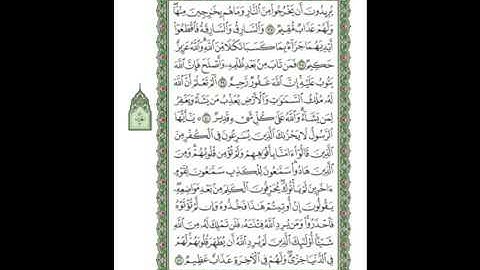 يُرِيدُونَ أَن يَخْرُجُوا۟ مِنَ ٱلنَّارِ وَمَا هُم بِخَٰرِجِينَ مِنْهَا ۖ
وَلَهُمْ عَذَابٌ مُّقِيمٌ ٣٧ وَٱلسَّارِقُ وَٱلسَّارِقَةُ فَٱقْطَعُوٓا۟
أَيْدِيَهُمَا جَزَآءًۢ بِمَا كَسَبَا نَكَٰلًا مِّنَ ٱللَّهِ ۗ وَٱللَّهُ عَزِيزٌ
حَكِيمٌ ٣٨ فَمَن تَابَ مِنۢ بَعْدِ ظُلْمِهِۦ وَأَصْلَحَ فَإِنَّ ٱللَّهَ
يَتُوبُ عَلَيْهِ ۗ إِنَّ ٱللَّهَ غَفُورٌ رَّحِيمٌ ٣٩ أَلَمْ تَعْلَمْ أَنَّ ٱللَّهَ
لَهُۥ مُلْكُ ٱلسَّمَٰوَٰتِ وَٱلْأَرْضِ يُعَذِّبُ مَن يَشَآءُ وَيَغْفِرُ
لِمَن يَشَآءُ ۗ وَٱللَّهُ عَلَىٰ كُلِّ شَىْءٍ قَدِيرٌ ٤٠ يَٰٓأَيُّهَا
ٱلرَّسُولُ لَا يَحْزُنكَ ٱلَّذِينَ يُسَٰرِعُونَ فِى ٱلْكُفْرِ مِنَ
ٱلَّذِينَ قَالُوٓا۟ ءَامَنَّا بِأَفْوَٰهِهِمْ وَلَمْ تُؤْمِن قُلُوبُهُمْ ۛ وَمِنَ
ٱلَّذِينَ هَادُوا۟ ۛ سَمَّٰعُونَ لِلْكَذِبِ سَمَّٰعُونَ لِقَوْمٍ
ءَاخَرِينَ لَمْ يَأْتُوكَ ۖ يُحَرِّفُونَ ٱلْكَلِمَ مِنۢ بَعْدِ مَوَاضِعِهِۦ ۖ
يَقُولُونَ إِنْ أُوتِيتُمْ هَٰذَا فَخُذُوهُ وَإِن لَّمْ تُؤْتَوْهُ
فَٱحْذَرُوا۟ ۚ وَمَن يُرِدِ ٱللَّهُ فِتْنَتَهُۥ فَلَن تَمْلِكَ لَهُۥ مِنَ ٱللَّهِ
شَيْـًٔا ۚ أُو۟لَٰٓئِكَ ٱلَّذِينَ لَمْ يُرِدِ ٱللَّهُ أَن يُطَهِّرَ قُلُوبَهُمْ ۚ لَهُمْ
فِى ٱلدُّنْيَا خِزْىٌ ۖ وَلَهُمْ فِى ٱلْـَٔاخِرَةِ عَذَابٌ عَظِيمٌ ٤١